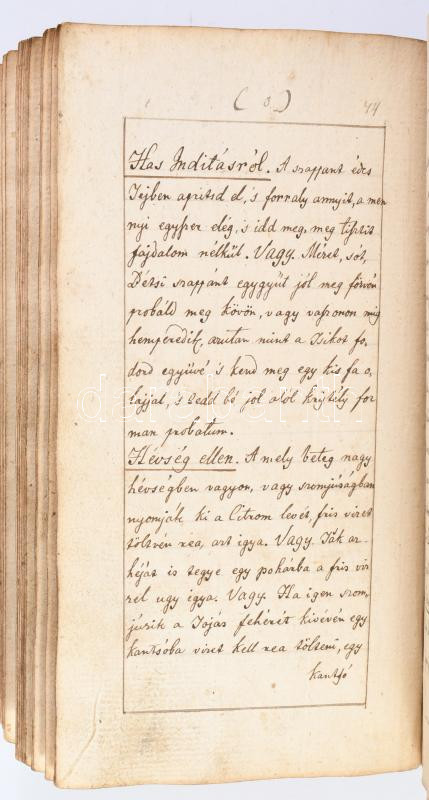 ( 8 ) 44
Has Inditásról. A szappant édes
Tejben apritsd el, 's forraly annyit, a men
nyi egyszer elég, 's idd meg, meg tisztit
fajdalom nélkűl. Vagy. Mézet, sót,
Détsi szappánt egygyűt jól meg főzvén
probáld meg kövön, vagy vasonon mig
hemperedik, azután mint a Tsikot fo-
dord együvé 's kend meg egy kis fa o-
lajjal, 's tedd bé jol alól kristély for
man probatum.
Hévség ellen. A mely beteg nagy
hévségben vagyon, vagy szomjuságban
nyomják ki a Citrom levét, fris vizet
töltvén rea, azt igya. Vagy. Ták ar-
héját is tegye egy pohárba a fris viz
zel ugy igya. Vagy. Ha igen szom-
júzik a Tojás fehérét kivévén egy
kantsóba vizet kell rea tölteni, egy
kantsó